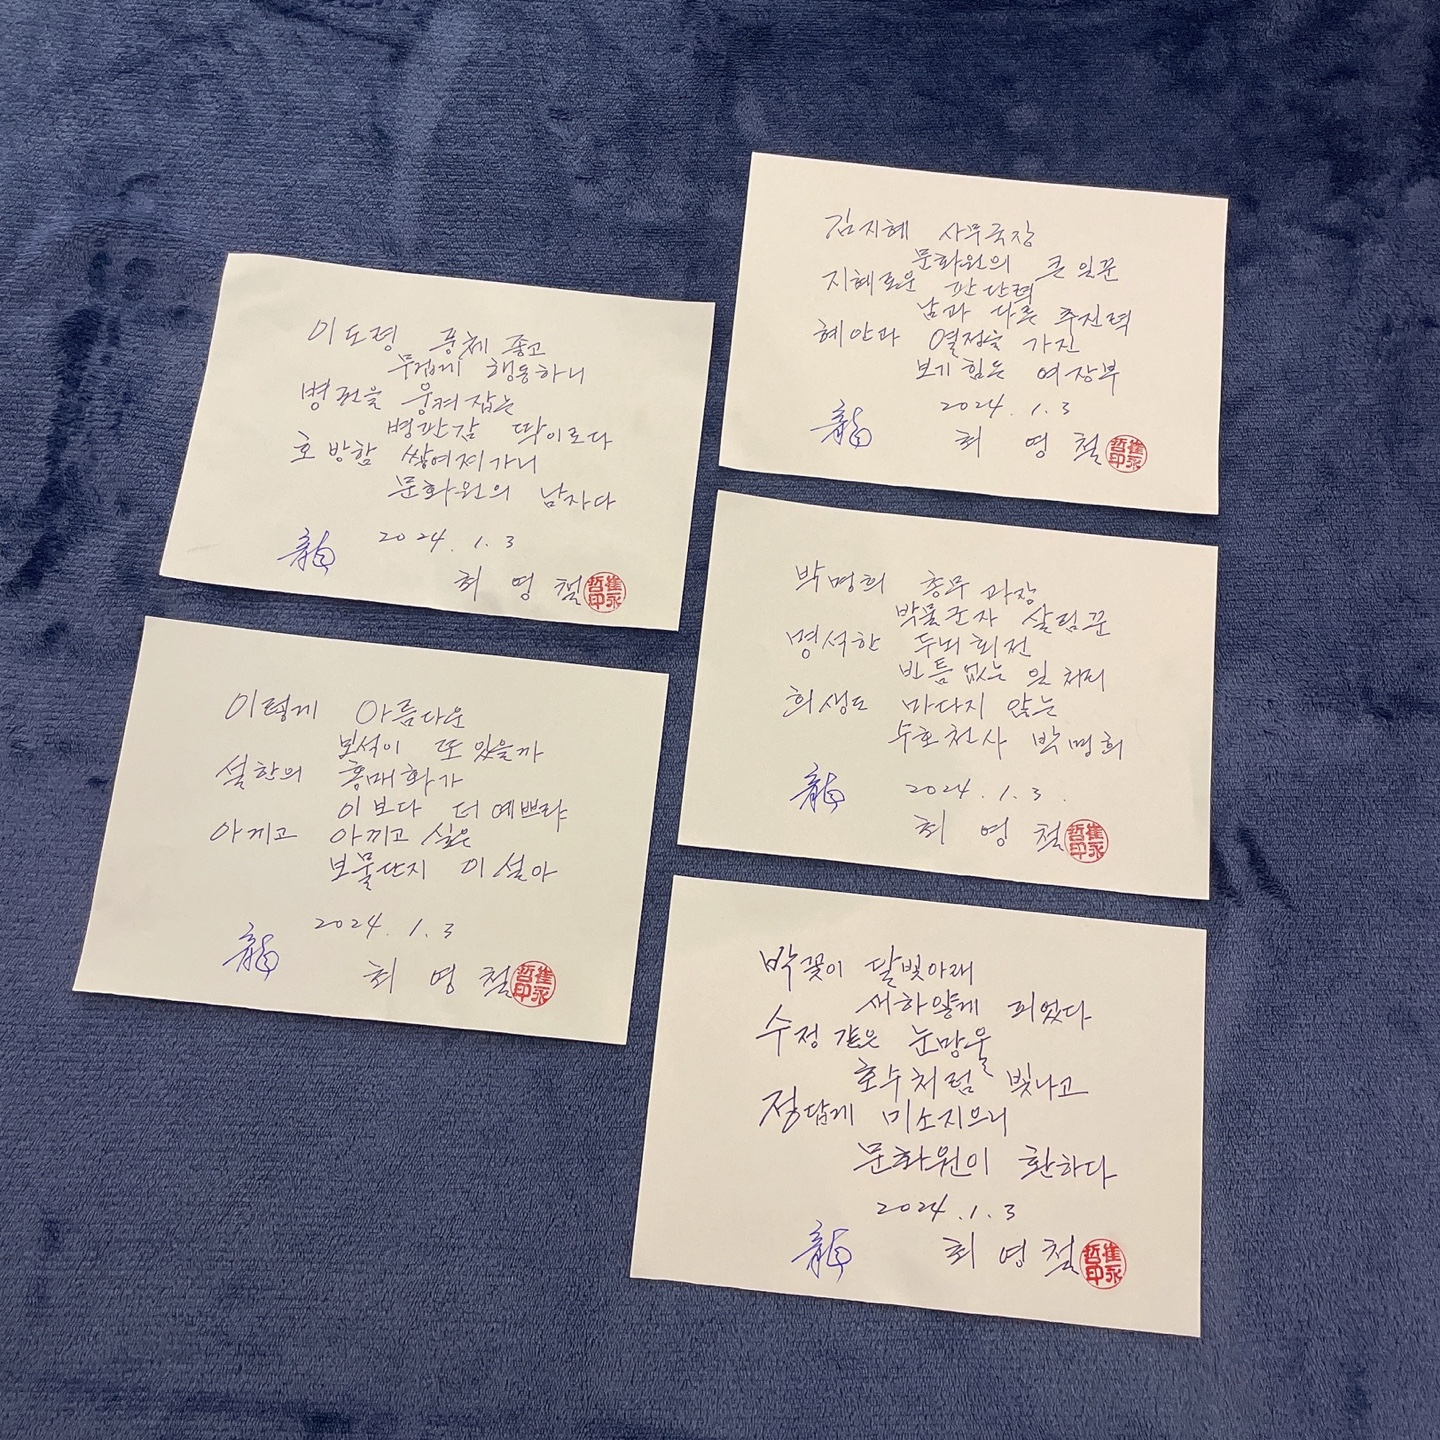 이도령 풍체 좋고
무겁게 행동하니
병권을 움켜 잡는
병판감 딱이로다
호방함 쌓여져가니
문화원의 남자다
龍 2024. 1. 3
최 영 철 崔永哲印
이렇게 아름다운
보석이 또 있을까
설한의 홍매화가
이보다 더 예쁘랴
아끼고 아끼고 싶은
보물단지 이설아
2024. 1. 3
龍 최 영 철 崔永哲印
김지혜 사무국장
문화원의 큰 일꾼
지혜로운 판단력
남과 다른 추진력
혜안과 열정을 가진
보기힘든 여장부
2024. 1. 3
龍 최 영 철 崔永哲印
박명희 총무과장
박물군자 살림꾼
명석한 두뇌회전
빈틈없는 일처리
희생도 마다지 않는
수호천사 박명희
龍 2024. 1. 3.
최 영 철 崔永哲印
박꽃이 달빛아래
새하얗게 피었다
수정 같은 눈망울
호수처럼 빛나고
정답게 미소지으니
문화원이 환하다
2024. 1. 3
龍 최 영 철 崔永哲印